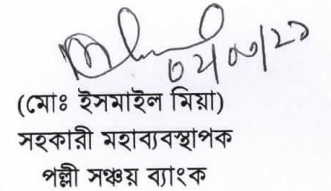 ০২/০৩/২১
(মোঃ ইসমাইল মিয়া)
সহকারী মহাব্যবস্থাপক
পল্লী সঞ্চয় ব্যাংক